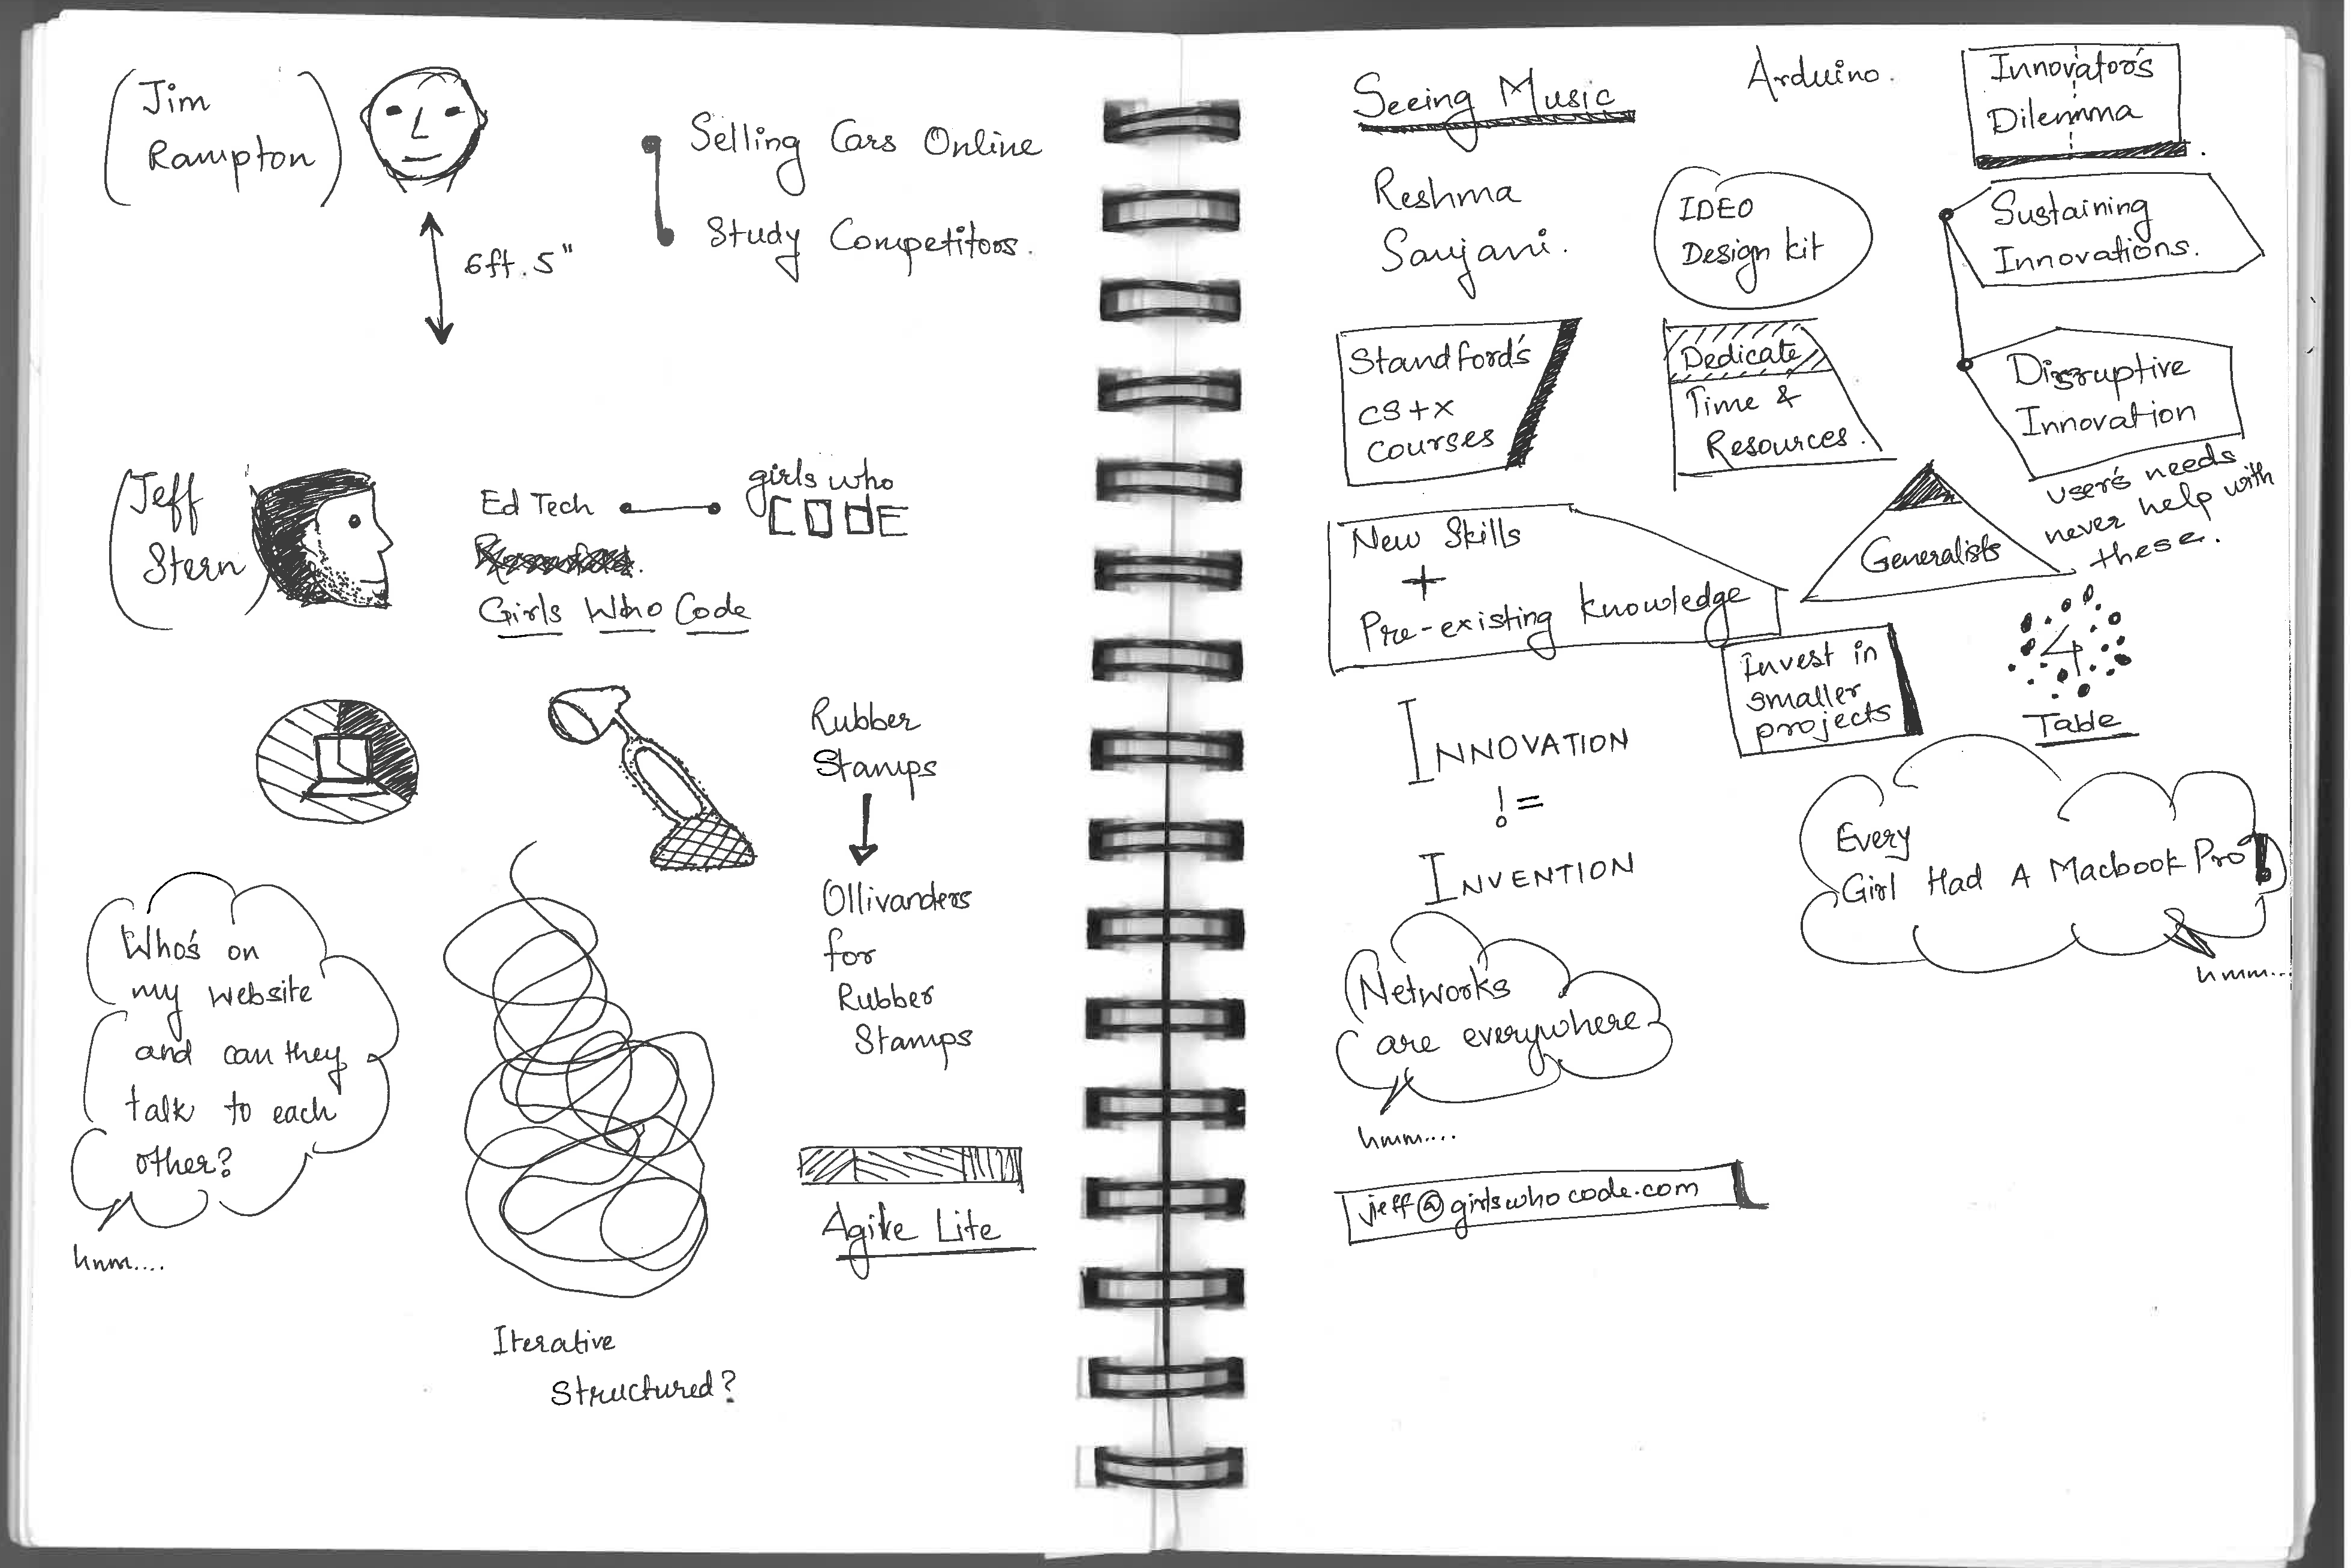 Jim
Rampton
6ft. 5"
Selling Cars Online
Study Competitors.
Jeff
Stern
Ed Tech
girls who
CODE
Girls Who Code
Rubber
Stamps
Ollivanders
for
Rubber
Stamps
Who's on
my website
and can they
talk to each
other?
hmm....
Iterative
Structured?
Agile Lite
Seeing Music
Arduino.
Innovator's
Dilemma
Reshma
Saujani.
IDEO
Design kit
Sustaining
Innovations.
Standford's
CS+X
courses
Dedicate
Time &
Resources.
Disruptive
Innovation
user's needs
never help with
these.
New Skills
+
Pre-existing knowledge
Generalists
Invest in
smaller
projects
4
Table
INNOVATION
!=
INVENTION
Every
Girl Had A Macbook Pro!
hmm...
Networks
are everywhere
hmm....
jeff@girlswhocode.com